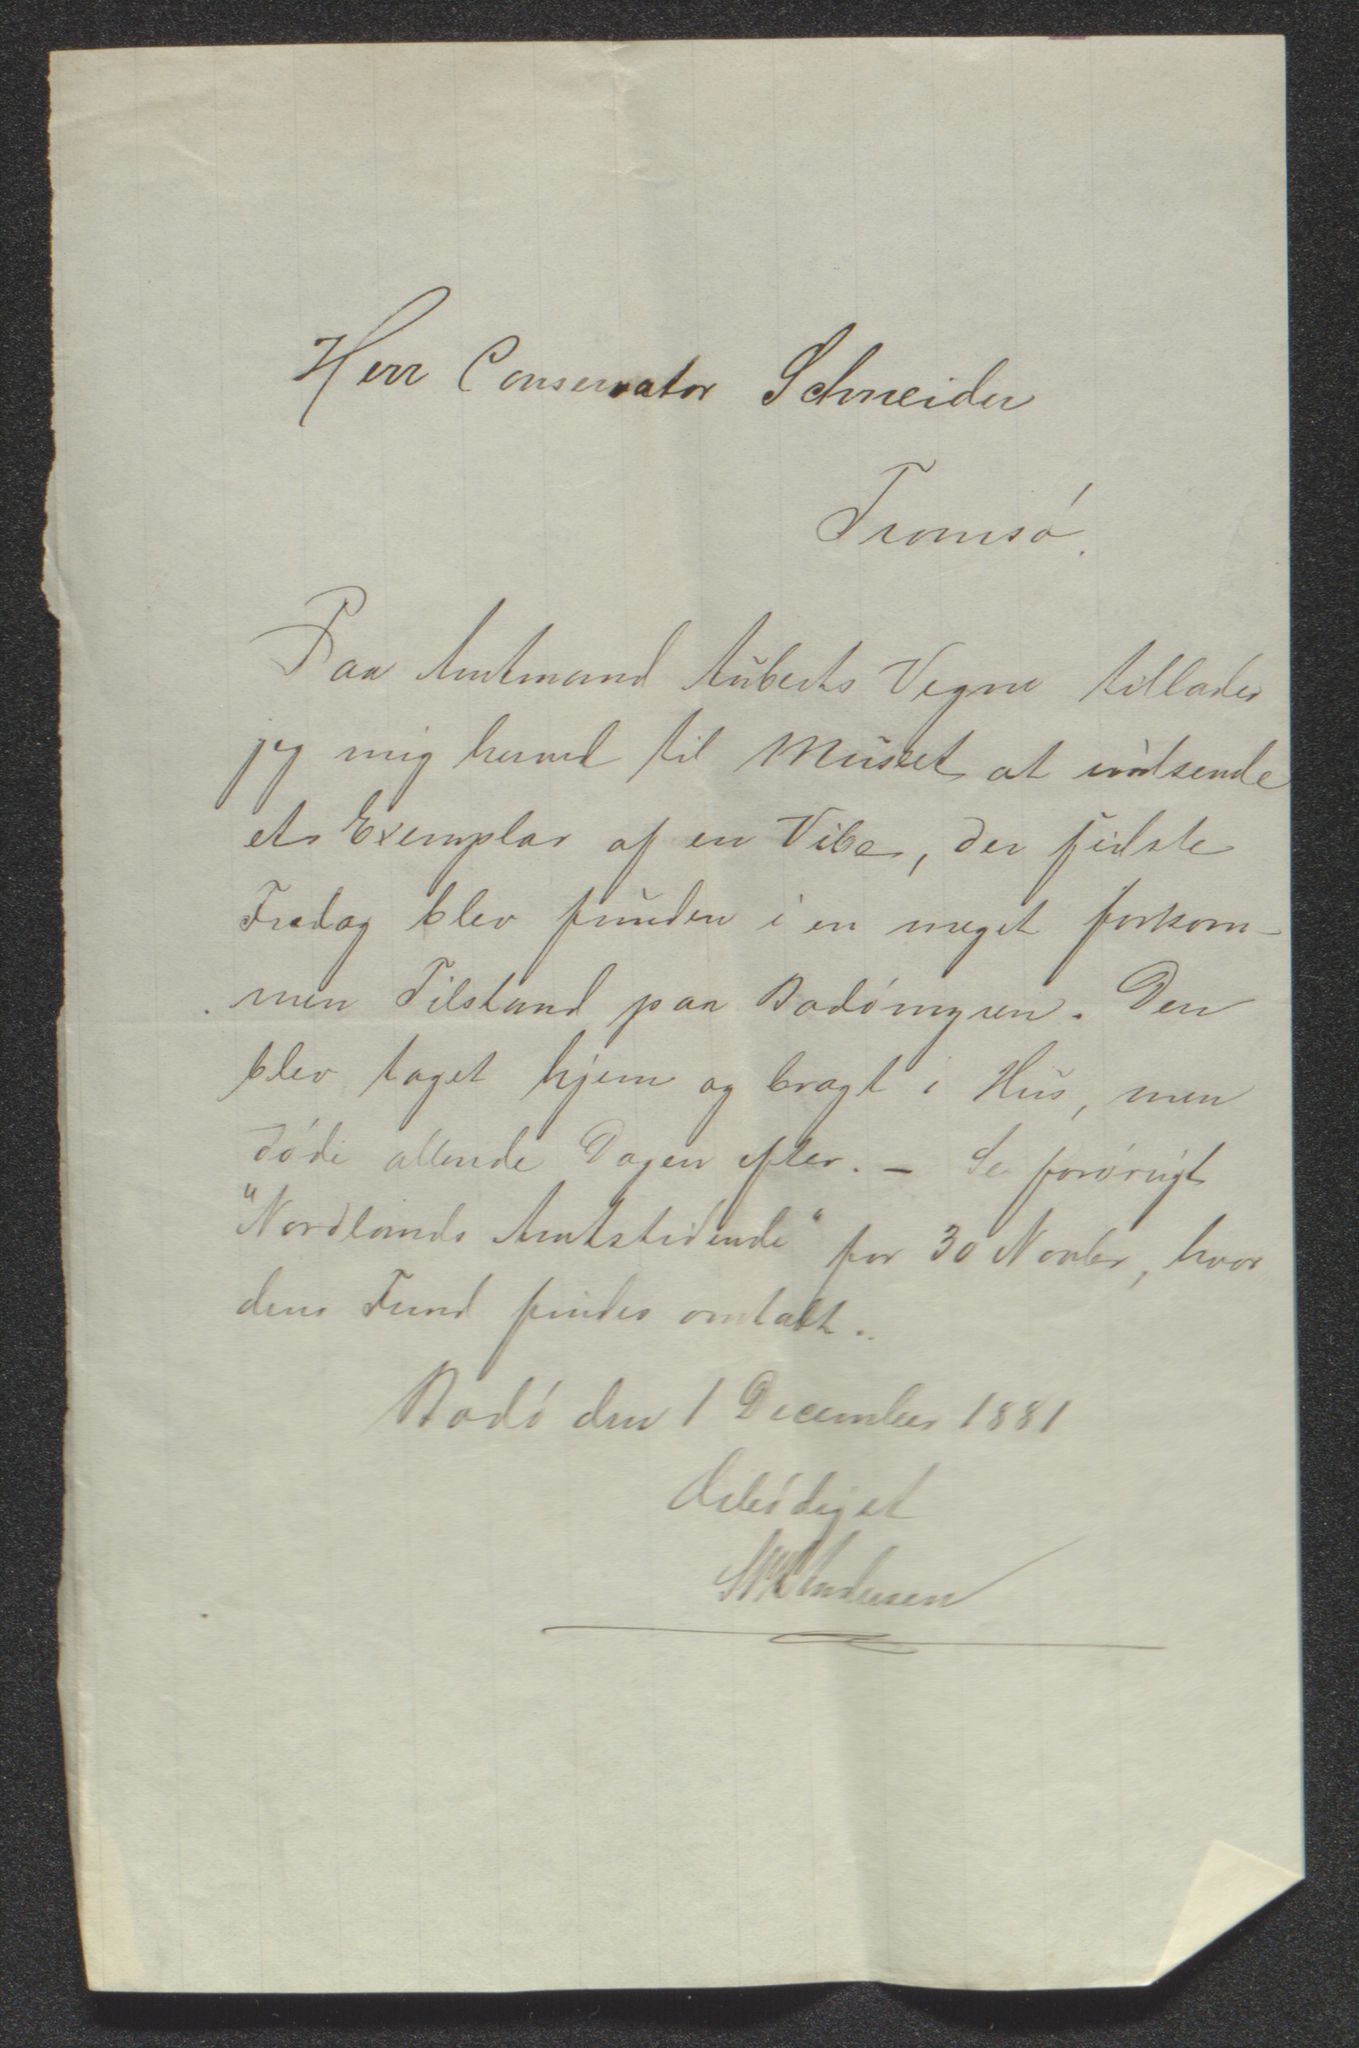 Herr Conservator Schneider
Tromsó.
Paa Amtmand Auberts Vegne tillader
jeg mig herved til Museet at indsende
et Exemplar af en Vibe, der sidste
Fredag blev funden i en meget forkom-
men Tilstand paa Bodómyren. Den
blev taget hjem og bragt i Hus, men
döde allerede Dagen efter. - Se forövrigt
"Nordlands Amtstidende" for 30 Novbr, hvor
dens Fund findes omtalt.
Bodó den 1 December 1881
Ærbódigst
Andersen